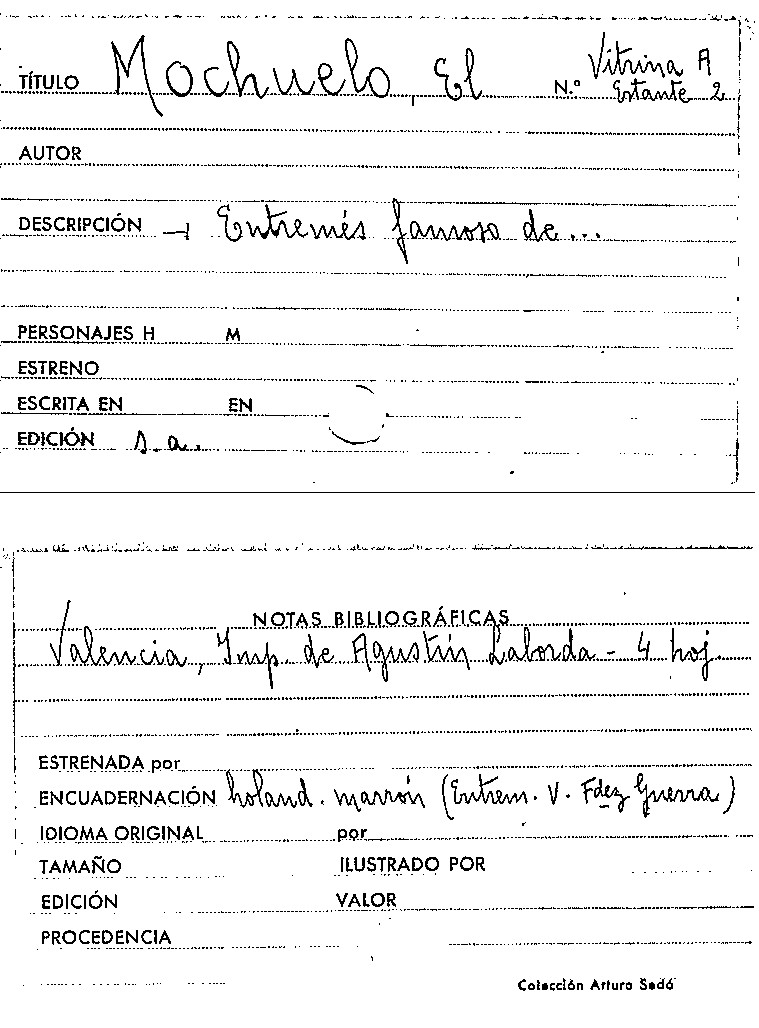 TÍTULO Mochuelo, El N.º Vitrina A
Estante 2
AUTOR
DESCRIPCIÓN → Entremés famoso de...
PERSONAJES H M
ESTRENO
ESCRITA EN EN
EDICIÓN s.a.
NOTAS BIBLIOGRÁFICAS
Valencia, Imp. de Agustín Laborda - 4 hoj.
ESTRENADA por
ENCUADERNACIÓN holand. marrón (Entrem. V. Fdez Guerra)
IDIOMA ORIGINAL por
TAMAÑO ILUSTRADO POR
EDICIÓN VALOR
PROCEDENCIA
Colección Arturo Sedó